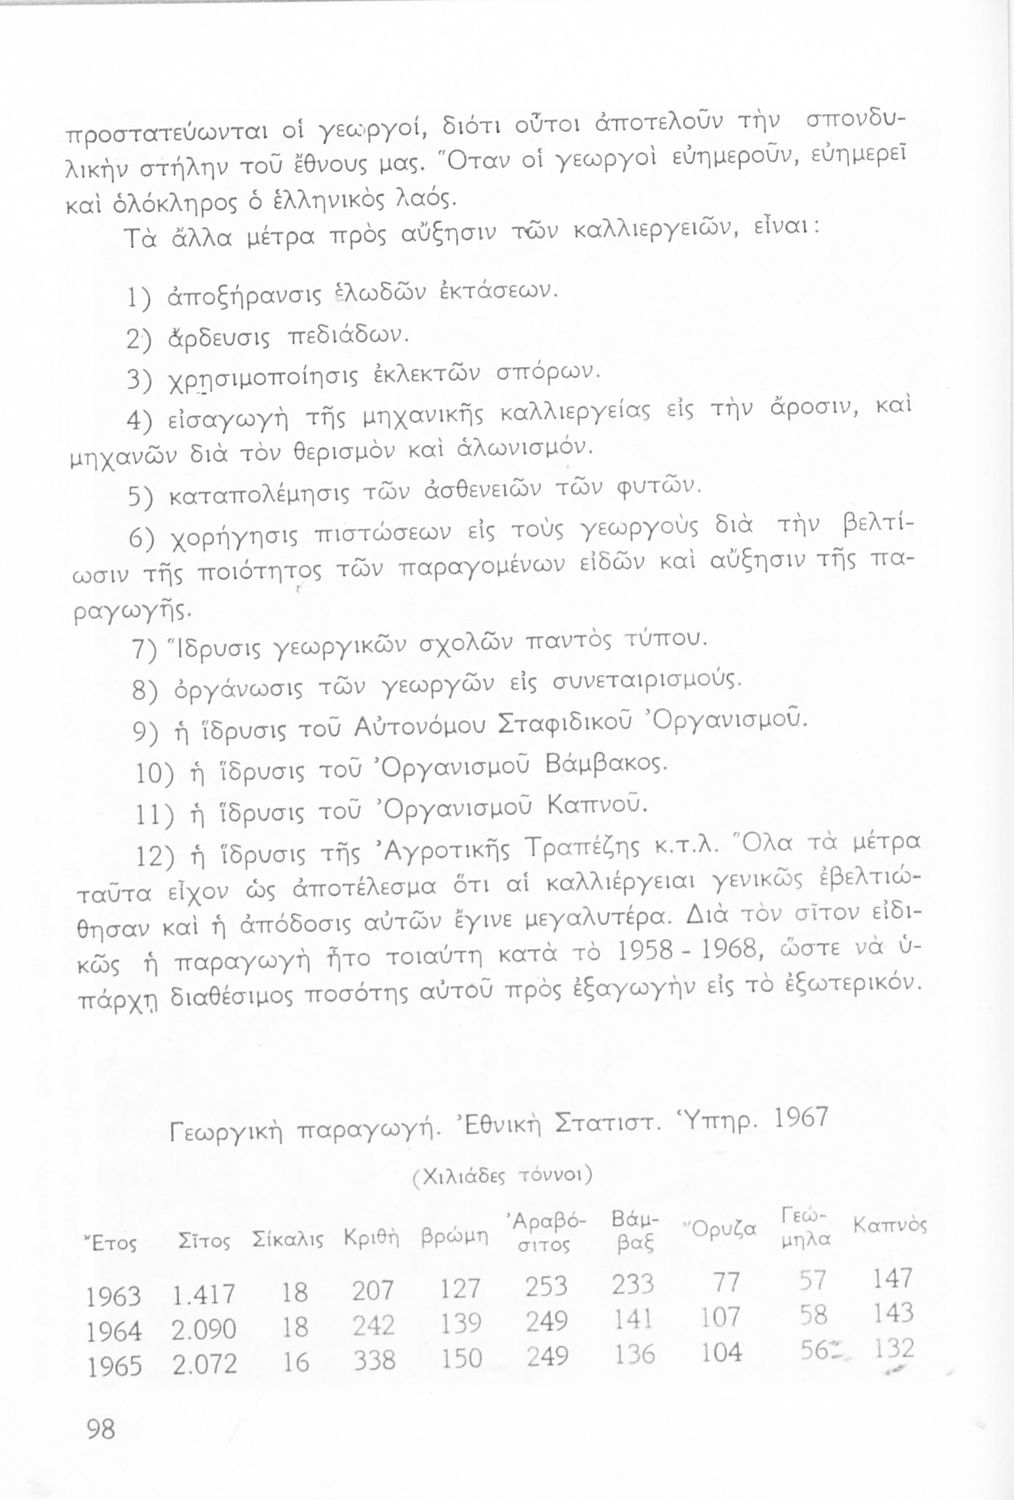 προστατεύωνται οἱ γεωργοί, διότι οὗτοι ἀποτελοῦν τὴν σπονδυ-
λικὴν στήλην τοῦ ἔθνους μας. Ὅταν οἱ γεωργοὶ εὐημεροῦν, εὐημερεῖ
καὶ ὁλόκληρος ὁ ἑλληνικὸς λαός.
Τὰ ἄλλα μέτρα πρὸς αὔξησιν τῶν καλλιεργειῶν, εἶναι:
1) ἀποξήρανσις ἑλωδῶν ἐκτάσεων.
2) ἄρδευσις πεδιάδων.
3) χρησιμοποίησις ἐκλεκτῶν σπόρων.
4) εἰσαγωγὴ τῆς μηχανικῆς καλλιεργείας εἰς τὴν ἄροσιν, καὶ
μηχανῶν διὰ τὸν θερισμὸν καὶ ἁλωνισμόν.
5) καταπολέμησις τῶν ἀσθενειῶν τῶν φυτῶν.
6) χορήγησις πιστώσεων εἰς τοὺς γεωργοὺς διὰ τὴν βελτί-
ωσιν τῆς ποιότητος τῶν παραγομένων εἰδῶν καὶ αὔξησιν τῆς πα-
ραγωγῆς.
7) Ἵδρυσις γεωργικῶν σχολῶν παντὸς τύπου.
8) ὀργάνωσις τῶν γεωργῶν εἰς συνεταιρισμούς.
9) ἡ ἵδρυσις τοῦ Αὐτονόμου Σταφιδικοῦ Ὀργανισμοῦ.
10) ἡ ἵδρυσις τοῦ Ὀργανισμοῦ Βάμβακος.
11) ἡ ἵδρυσις τοῦ Ὀργανισμοῦ Καπνοῦ.
12) ἡ ἵδρυσις τῆς Ἀγροτικῆς Τραπέζης κ.τ.λ. Ὅλα τὰ μέτρα
ταῦτα εἶχον ὡς ἀποτέλεσμα ὅτι αἱ καλλιέργειαι γενικῶς ἐβελτιώ-
θησαν καὶ ἡ ἀπόδοσις αὐτῶν ἔγινε μεγαλυτέρα. Διὰ τὸν σῖτον εἰδι-
κῶς ἡ παραγωγὴ ἦτο τοιαύτη κατὰ τὸ 1958 - 1968, ὥστε νὰ ὑ-
πάρχῃ διαθέσιμος ποσότης αὐτοῦ πρὸς ἐξαγωγὴν εἰς τὸ ἐξωτερικόν.
Γεωργικὴ παραγωγή. Ἐθνικὴ Στατιστ. Ὑπηρ. 1967
(Χιλιάδες τόννοι)
Ἔτος Σῖτος Σίκαλις Κριθὴ βρώμη Ἀραβό-σιτος Βάμ-βαξ Ὄρυζα Γεώ-μηλα Καπνὸς
1963 1.417 18 207 127 253 233 77 57 147
1964 2.090 18 242 139 249 141 107 58 143
1965 2.072 16 338 150 249 136 104 56 132
98